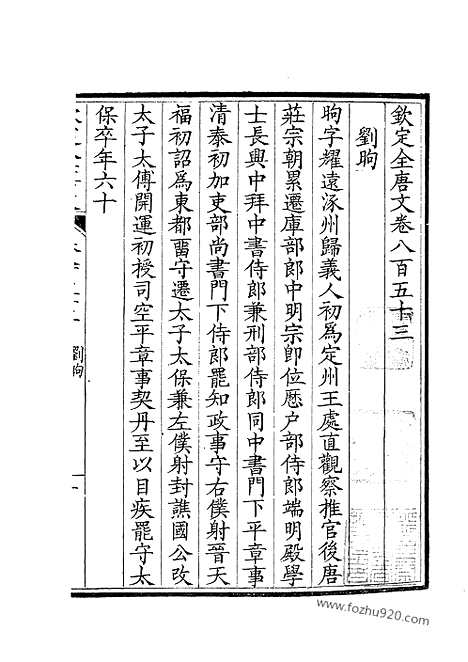 欽定全唐文卷八百五十三
劉昫
昫字耀遠涿州歸義人初爲定州王處直觀察推官後唐
莊宗朝累遷庫部郎中明宗卽位歷户部侍郎端明殿學
士長興中拜中書侍郎兼刑部侍郎同中書門下平章事
清泰初加吏部尚書門下侍郎罷知政事守右僕射晉天
福初詔爲東都畱守遷太子太保兼左僕射封譙國公改
太子太傅開運初授司空平章事契丹至以目疾罷守太
保卒年六十
劉昫
一
www.fozhu920.com